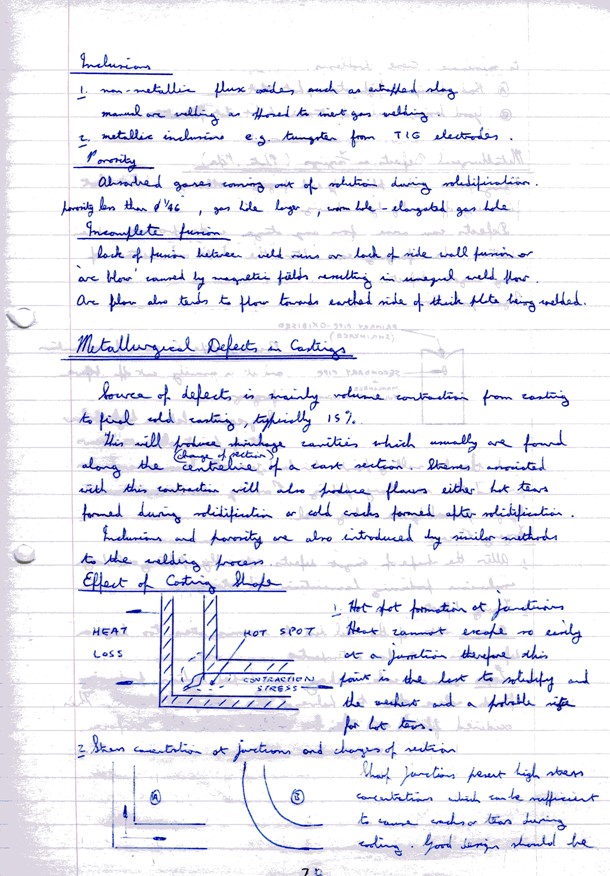 Inclusions
1. non-metallic flux oxides such as entrapped slag
manual arc welding as opposed to inert gas welding.
2. metallic inclusions e.g. tungsten from TIG electrodes.
Porosity
Absorbed gases coming out of solution during solidification.
porosity less than ø 1/16", gas hole larger, worm hole - elongated gas hole
Incomplete fusion
Lack of fusion between weld runs or lack of side wall fusion or
'arc blow' caused by magnetic fields resulting in unequal weld flow.
Arc flow also tends to flow towards earthed side of thick plate being welded.
Metallurgical Defects in Castings
Source of defects is mainly volume contraction from casting
to final cold casting, typically 15%.
This will produce shrinkage cavities which usually are found
(change of section)
along the centreline of a cast section. Stresses associated
with this contraction will also produce flaws either hot tears
formed during solidification or cold cracks formed after solidification.
Inclusions and porosity are also introduced by similar methods
to the welding process.
Effect of Casting Shape
HEAT
LOSS
HOT SPOT
CONTRACTION
STRESS
1 Hot spot formation at junctions
Heat cannot escape so easily
at a junction therefore this
point is the last to solidify and
the weakest and a probable site
for hot tears.
2 Stress concentration at junctions and changes of section
A
B
Sharp junctions present high stress
concentrations which can be sufficient
to cause cracks or tears during
cooling. Good design should be